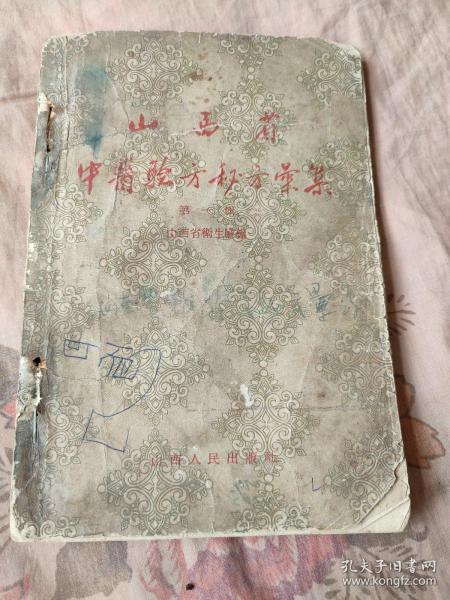 山西省
中醫驗方秘方彙集
第一
山西省衛生廳編
山西人民出版社
孔夫子旧书网
www.kongfz.com